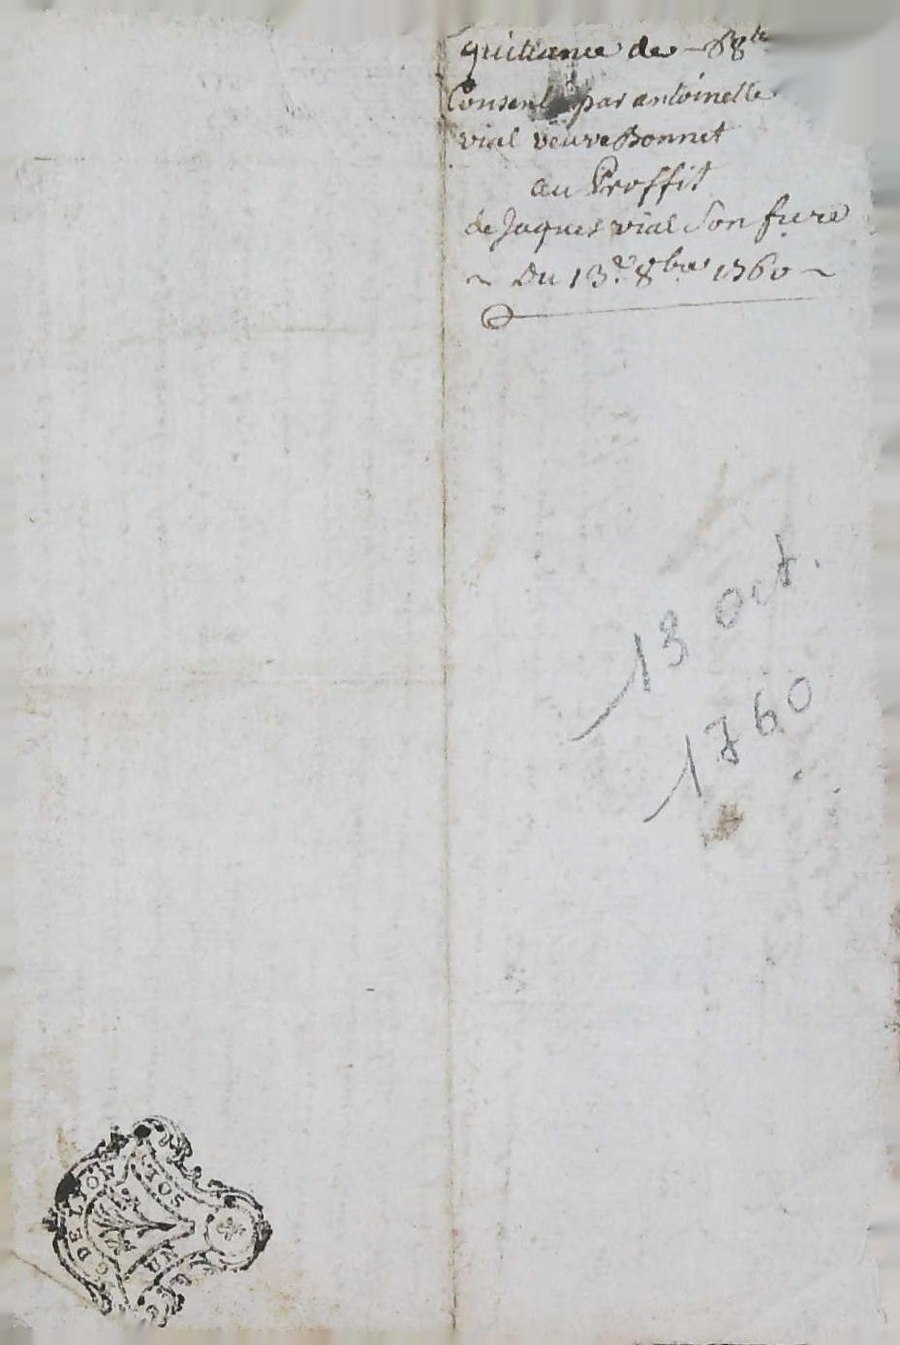 quittance de 68 lt
Consent par antoinette
vial veuve Bonnet
au Proffit
de Jaques vial Son frere
~ Du 13e 8bre 1760 ~
13 Oct.
1760
G DE LYON
SOL
UN